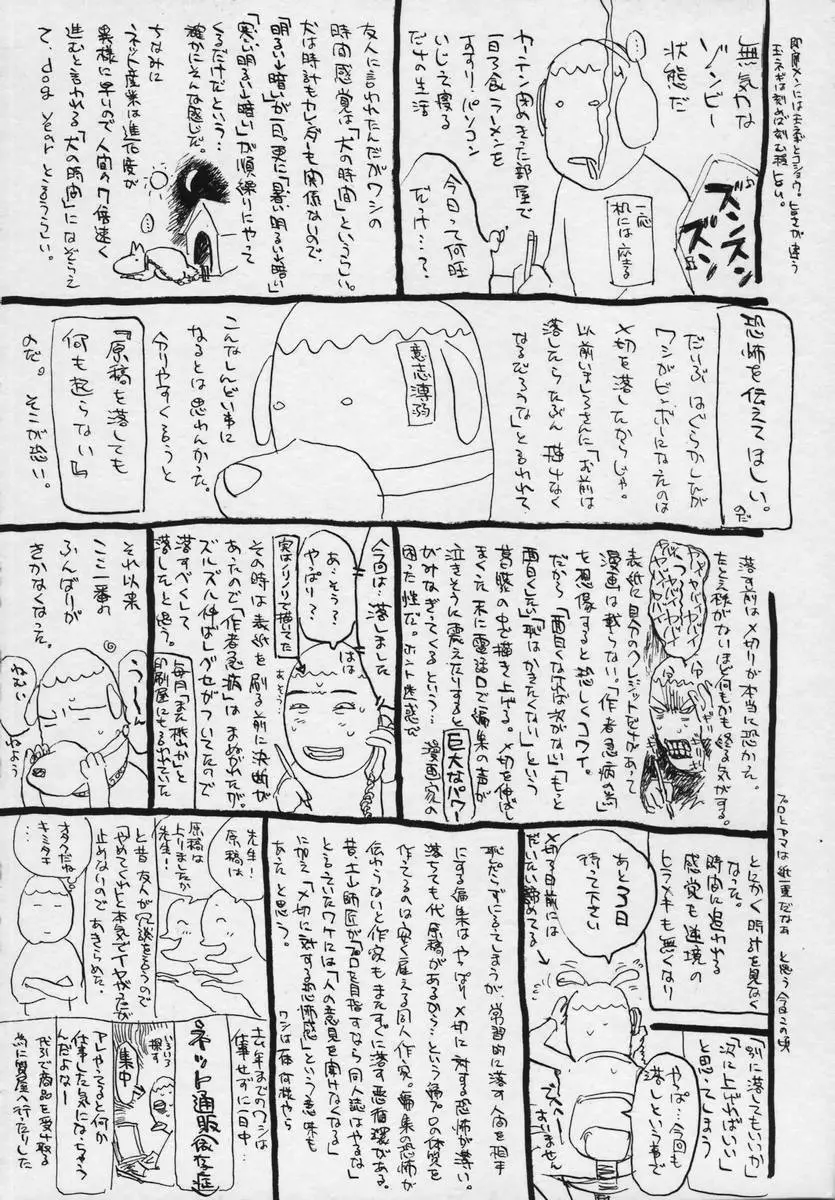 無気力な
ゾンビー
状態だ
カーテン閉めきった部屋で
一日3食ラーメンを
すすり、パソコン
いじって寝る
だけの生活
今日って何曜
だっけ…?
一応
机には座る
ズンズン
ズン
友人に言われたんだがワシの
時間感覚は「犬の時間」というらしい。
犬は時計もカレンダーも関係ないので
「明るい→暗い」が一日。更に「暑い明るい→暗い」
「寒い明るい→暗い」が順繰りにやって
くるだけだという…
確かにそんな感じだ。
ちなみに
ネット産業は進化度が
異様に早いので人間の7倍速く
進むと言われる「犬の時間」になぞらえ
て、dog yearと言うらしい。
恐怖を伝えてほしい。
のだ
だいぶはぐらかしたが
ワシがビンボーになったのは
〆切を落したからじゃ。
以前いましろさんに「お前は
落したらたぶん描けなく
なるだろうな」と言われて
意志薄弱
こんなしんどい事に
なるとは思わんかった。
分りやすく言うと
『原稿を落しても
何も起らない』
のだ。そこが恐い。
落す前は〆切りが本当に恐かった。
たとえ様がないほど何もかも終る気がする。
ヤバイヤバイ
表紙に自分のクレジットだけがあって
漫画は載らない「作者急病の為」
を想像すると恐しくコワイ。
だから「面白くなければ次がない」「もっと
面白くしたい」「恥はかきたくない」という
葛藤の中で描き上げる。〆切を伸ばし
まくった末に電話口で編集の声が
泣きそうに震えたりすると巨大なパワー
がみなぎってくるという…漫画家の
困った性だ。ホント迷惑で
今回は…落しました
あ、そう?
やっぱり?
はは
実はノリノリで描いてた
その時は表紙を刷る前に決断が
あったので「作者急病」はまぬがれたが、
ズルズル伸ばしグセがついてたので
落すべくして
落したと思う。
毎月「まだ橋山か」と
印刷屋にも言われていた
それ以来
ここ一番の
ふんばりが
きかなくなった。
う〜ん
ねむい
ねよう
プロとアマは紙一重だなぁ と思う今日この頃
とにかく時計を見なく
なった。
時間に追われる
感覚も逆境の
ヒラメキも無くなり
「別に落してもいいか」
「次に上げればいい」
と思ってしまう
やっぱ…今回も
落しという事で
あと3日
待って下さい
〆切3日前には
だいたい諦めてる
すいません
恥だらずになってしまうが、常習的に落す人間を相手
にする編集はやっぱり〆切に対する恐怖が薄い。
落てても代原稿があるから…という編プロの体質を
作ってるのは安く雇える同人作家。編集の恐怖が
伝わらないと作家もまたすぐに落す悪循環がある。
昔、土山師匠が「プロを目指すなら同人誌はやるな」
と言っていたワケには「人の意見を聞けなくなる」
に加え「〆切に対する恐怖感」という意味も
あったと思う。
ワシは一体何様やら
先生!
原稿は
原稿は
上りましたか
先生!
オタクだね
キミタチ
と昔友人が冗談を言うので
「やめてくれ」と本気でイヤがったが
止めないのであきらめた。
去年までのワシは
仕事せずに一日中…
ネット通販依存症
集中
いろいろ
探す
アレやってると何か
仕事した気になっちゃう
んだよなー
代引で商品を受け取る
為に質屋へ行ったりした